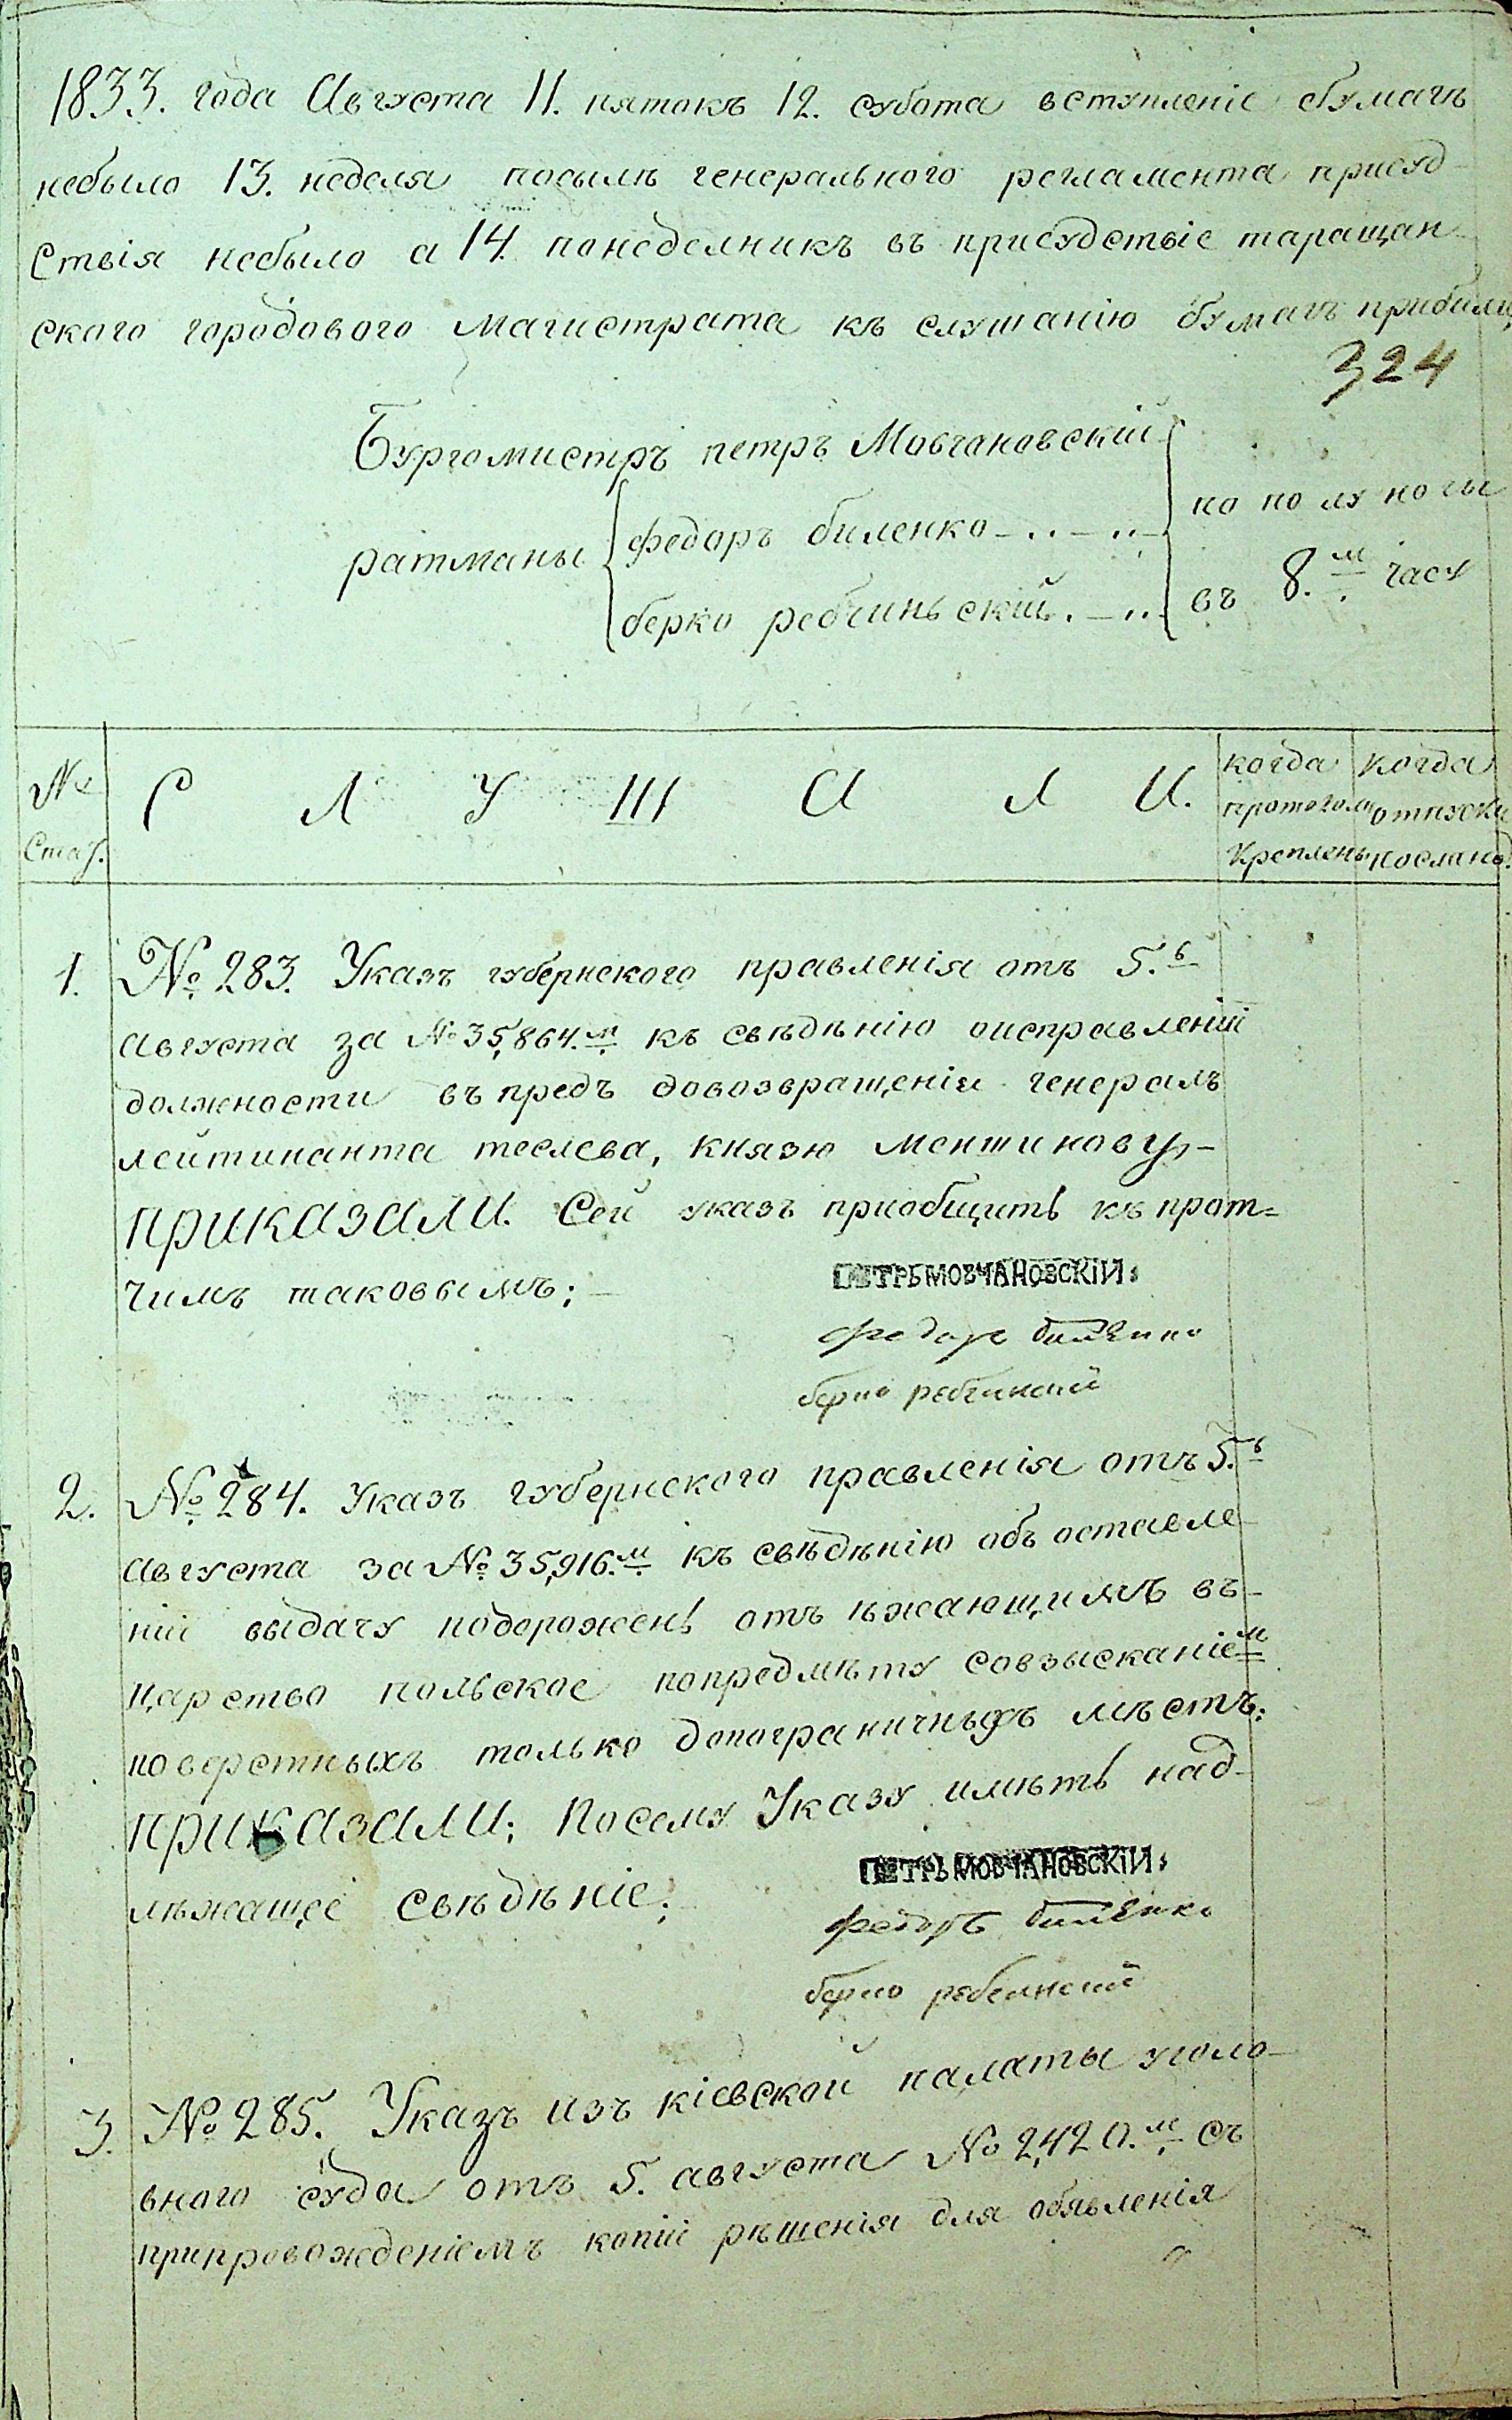 1833. года Августа 11. пятокъ 12. субота вступленіе бумагъ
небыло 13. неделя посылѣ генерального регламента присуд-
ствія небыло а 14. понеделникъ въ присудствіе таращан-
ского городового магистрата къ слушанію бумагъ прибыли,
324
Бургомистръ петръ Мовчановскій
ратманы федоръ биленко
берко ребчиньскій
по полуночы
въ 8.м часу
№ С Л У Ш А Л И. когда когда
Стат. протоколы отпуски
Креплены посланы.
1. № 283. Указъ губернского правленія отъ 5.г
Августа за № 35,864.м къ свѣдѣнію оисправленіи
должности въпредъ довозвращенія генералъ
лейтинанта теслева, князю меншикову,-
приказали. Сей указъ приобщить къ прот=
чимъ таковымъ;-
ПЕТРЬ МОВЧАНОВСКІЙ:
федоръ биленко
берко ребчинский
2. № 284. Указъ губернского правленія отъ 5.г
Августа за № 35,916.м къ свѣдѣнію объ оставле-
ніи выдачу подорожень отъ ѣжающимъ въ-
царство польское попредмѣту совзысканіем
поверстныхъ только допограничныхъ мѣстъ:
приказали; Посему Указу имѣть над-
лѣжащее свѣдѣніе;
ПЕТРЬ МОВЧАНОВСКІЙ:
федоръ биленко
берко ребчинский
3. № 285. Указъ изъ кіевской палаты уголо-
вного суда отъ 5. августа № 2,420.м съ
припровожденіемъ копіи рѣшенія для обявленія